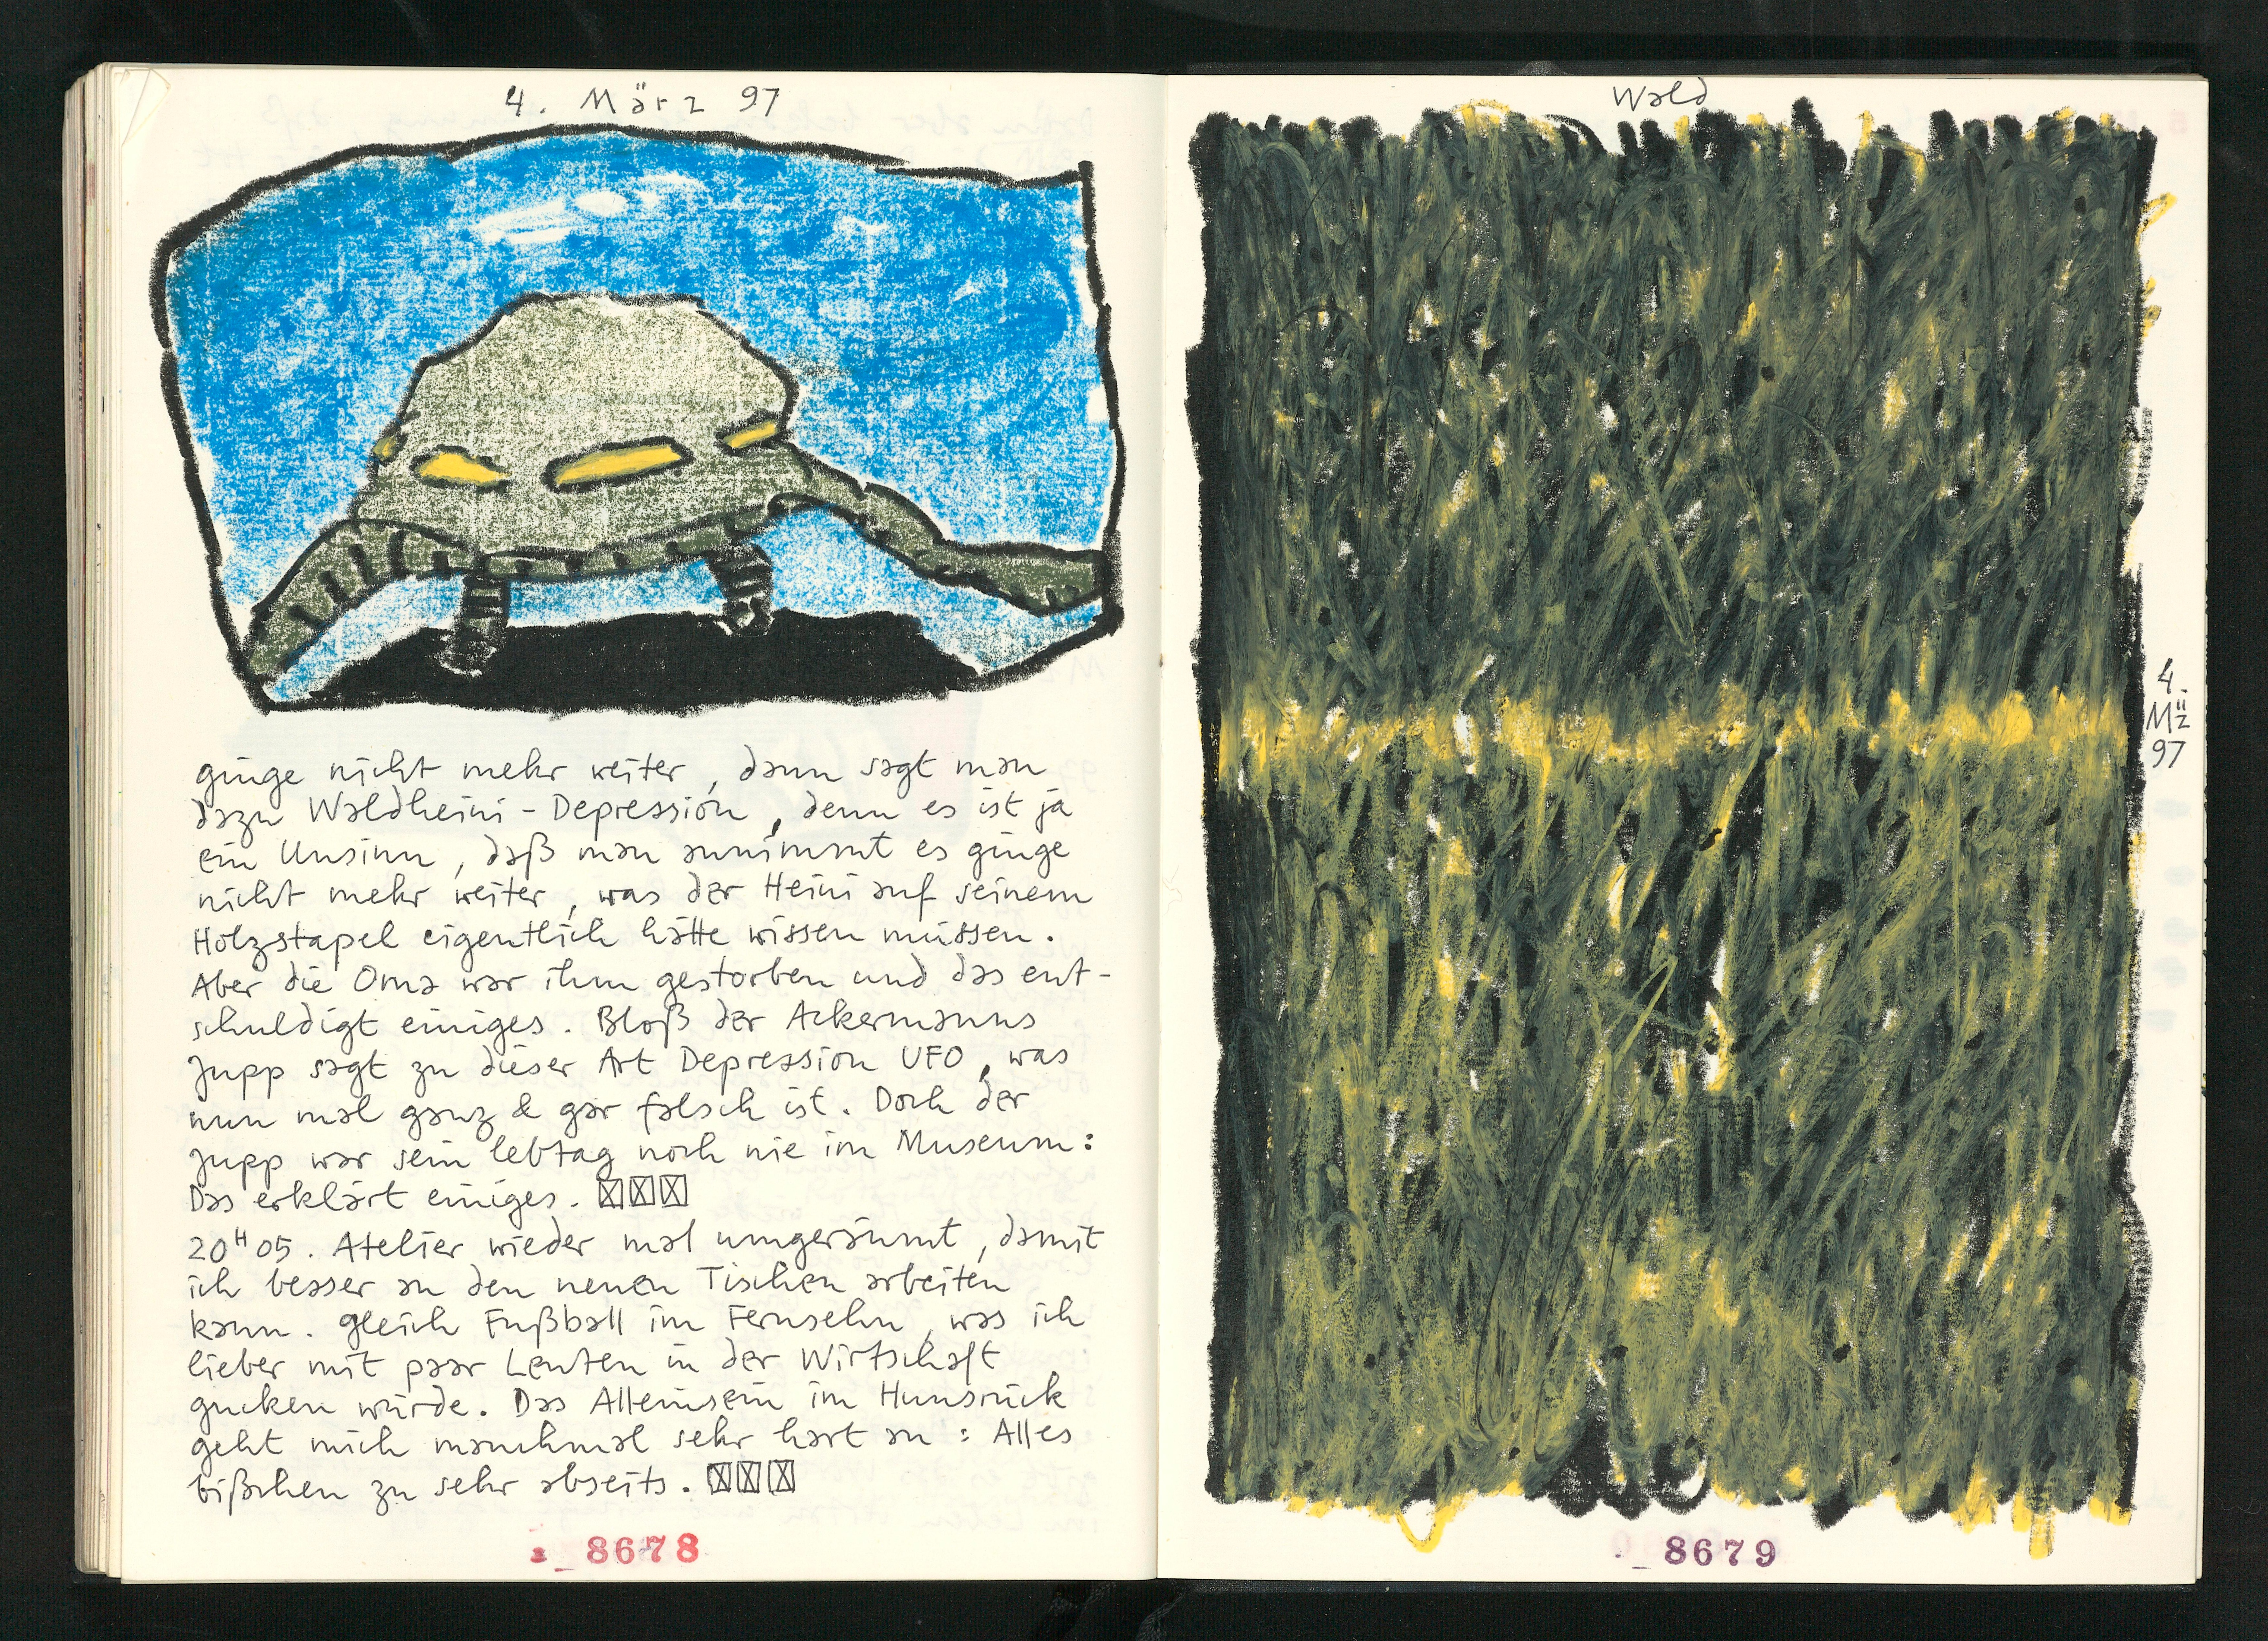 4. März 97
ginge nicht mehr weiter, dann sagt man
dazu Waldheini-Depression, denn es ist ja
ein Unsinn, daß man annimmt es ginge
nicht mehr weiter, was der Heini auf seinem
Holzstapel eigentlich hätte wissen müssen.
Aber die Oma war ihm gestorben und das ent-
schuldigt einiges. Bloß der Ackermanns
Jupp sagt zu dieser Art Depression UFO, was
nun mal ganz & gar falsch ist. Doch der
Jupp war sein lebtag noch nie im Museum:
Das erklärt einiges. ☒☒☒
20H05. Atelier wieder mal umgeräumt, damit
ich besser an den neuen Tischen arbeiten
kann. Gleich Fußball im Fernsehn, was ich
lieber mit paar Leuten in der Wirtschaft
gucken würde. Das Alleinsein im Hunsrück
geht mich manchmal sehr hart an: Alles
bißchen zu sehr abseits. ☒☒☒
8678
Wald
4.
Mäz
97
8679